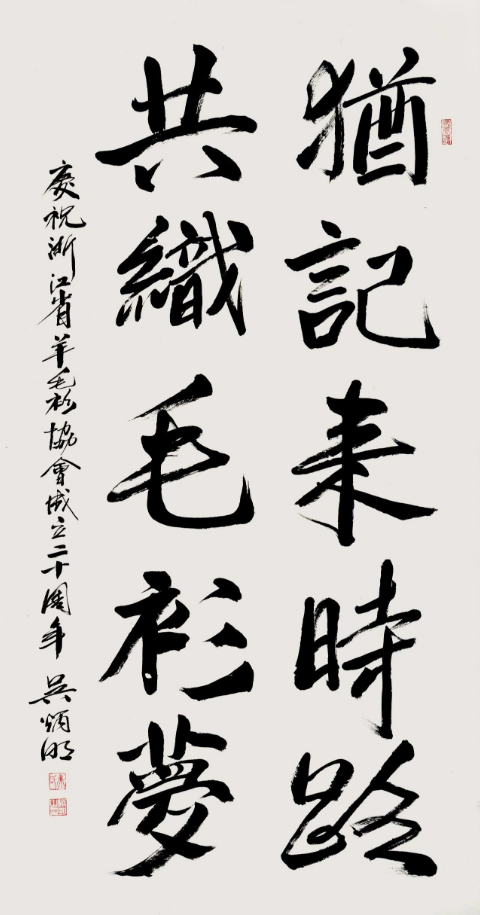 猶記来時路
共織毛衫夢
慶祝浙江省羊毛衫協會成立二十周年 吴炳